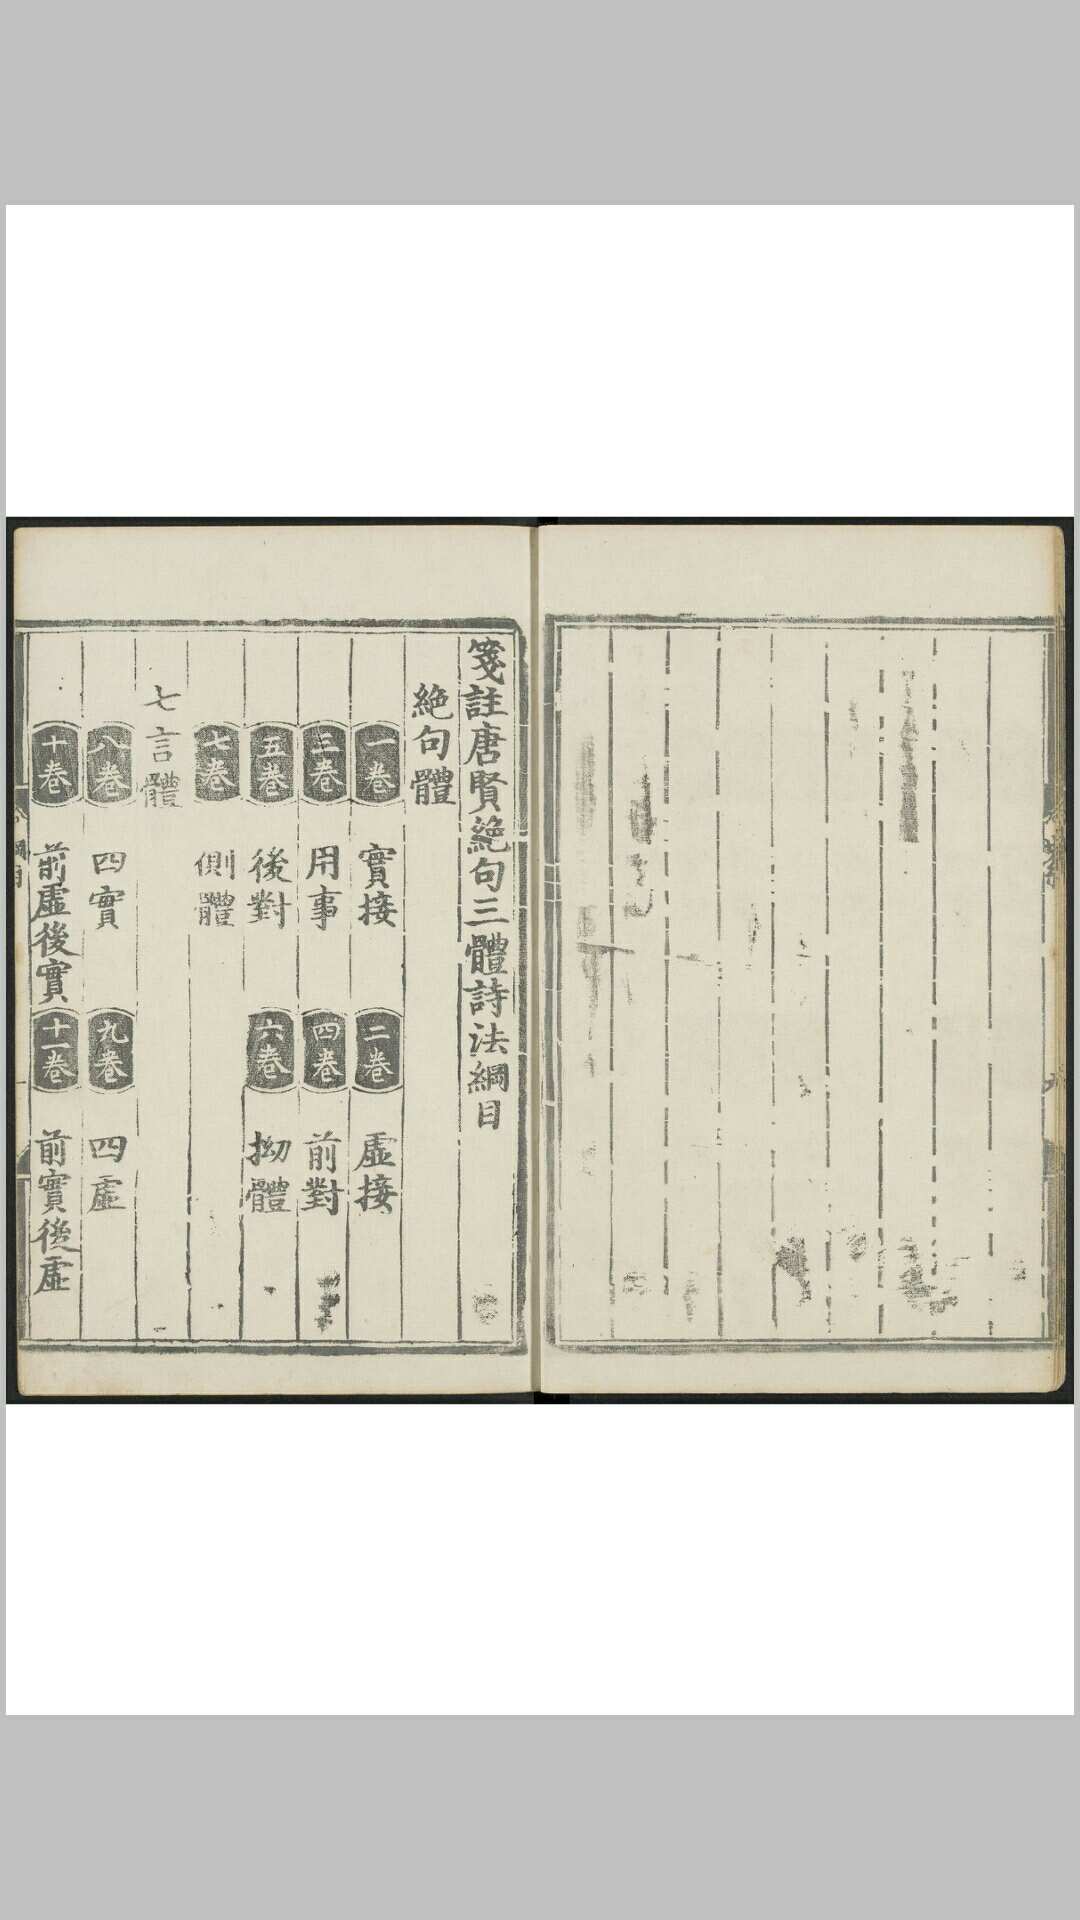 箋註唐賢絕句三體詩法綱目
絕句體
一卷 實接 二卷 虛接
三卷 用事 四卷 前對
五卷 後對 六卷 拗體
七卷 側體
七言體
八卷 四實 九卷 四虛
十卷 前虛後實 十一卷 前實後虛